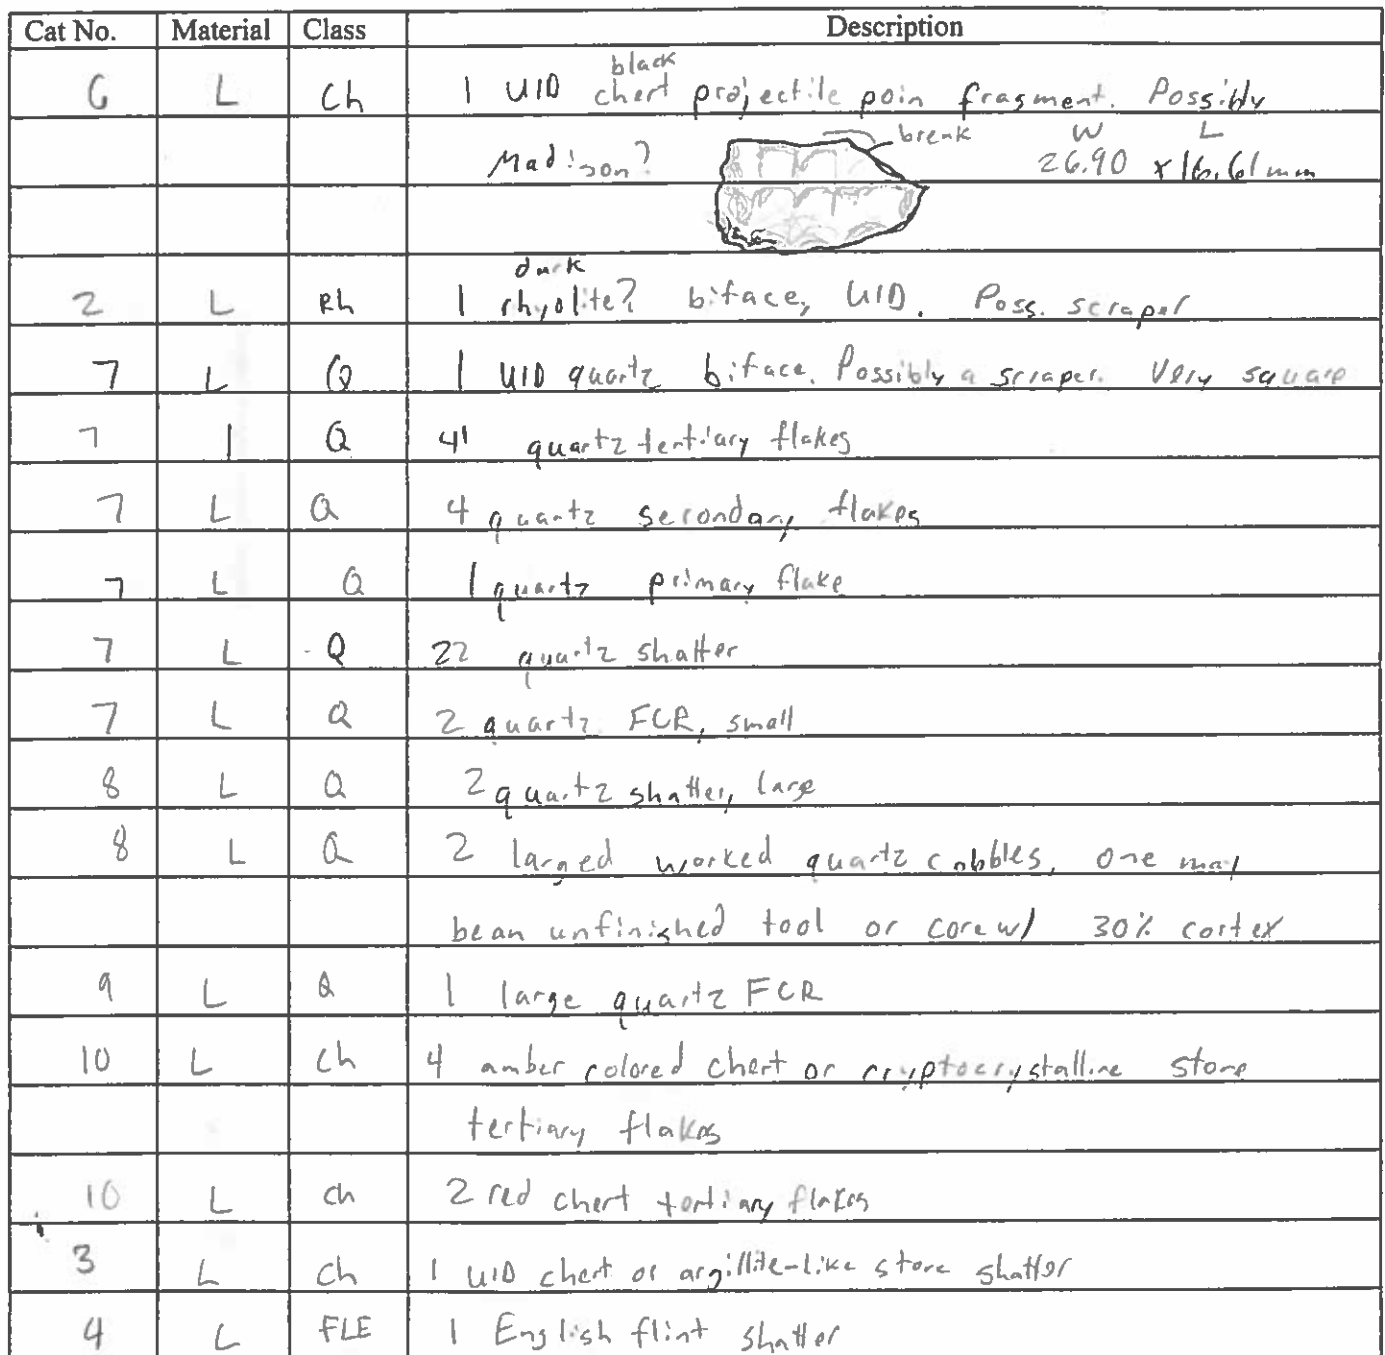 Cat No. Material Class Description
6 L Ch 1 UID black chert projectile poin fragment. Possibly
Madison? break W L
26.90 x 16.61 mm
2 L Rh 1 dark rhyolite? biface, UID. Poss. scraper
7 L Q 1 UID quartz biface. Possibly a scraper. Very square
7 L Q 41 quartz tertiary flakes
7 L Q 4 quartz secondary flakes
7 L Q 1 quartz primary flake
7 L Q 22 quartz shatter
7 L Q 2 quartz FCR, small
8 L Q 2 quartz shatter, large
8 L Q 2 larged worked quartz cobbles, one may
be an unfinished tool or core w/ 30% cortex
9 L Q 1 large quartz FCR
10 L Ch 4 amber colored chert or cryptocrystalline stone
tertiary flakes
10 L Ch 2 red chert tertiary flakes
3 L Ch 1 UID chert or argillite-like stone shatter
4 L FLE 1 English flint shatter